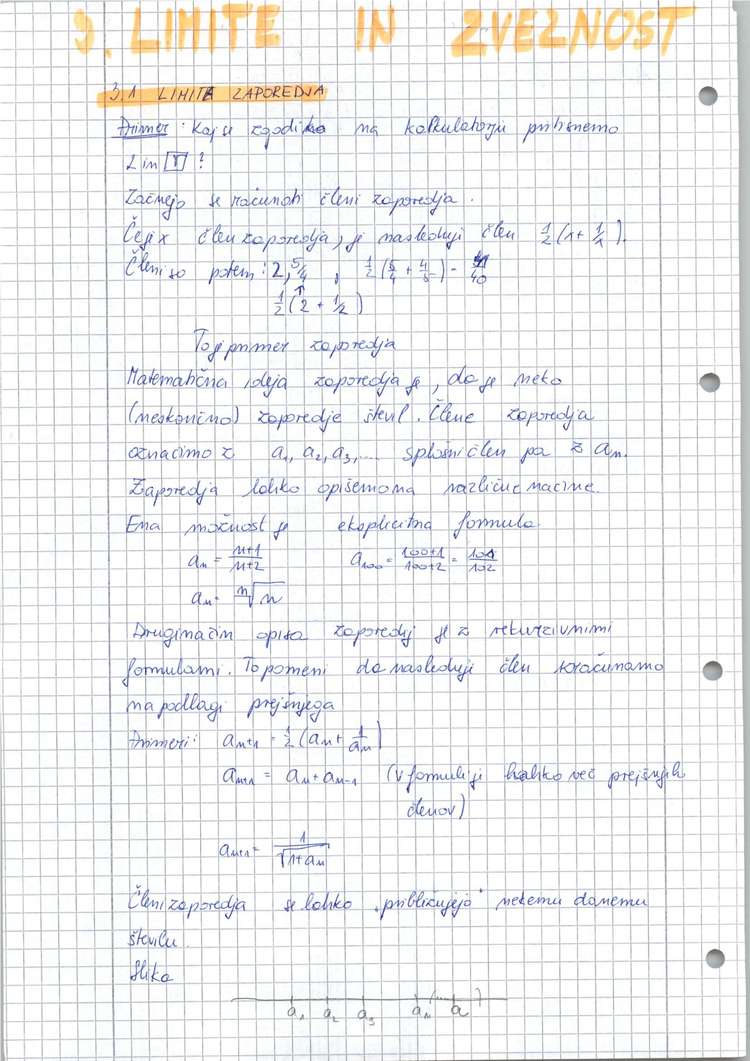 3. LIMITE IN ZVEZNOST
3.1 LIMITA ZAPOREDJA
Primer: Kaj se zgodi ko na kalkulatorju pritisnemo
2 in √ ?
Začnejo se računati členi zaporedja.
Če je x člen zaporedja, je naslednji člen 1/2 (x + 1/x).
Členi so potem: 2, 5/4, 1/2 (5/4 + 4/5) = 41/40
1/2 (2 + 1/2)
To je primer zaporedja
Matematična ideja zaporedja je, da je neko
(neskončno) zaporedje števil. Člene zaporedja
označimo z a₁, a₂, a₃, ... splošni člen pa z aₙ.
Zaporedja lahko opišemo na različne načine.
Ena možnost je eksplicitna formula
aₙ = n+1/n+2 a₁₀₀ = 100+1/100+2 = 101/102
aₙ = ⁿ√n
Drugi način opisa zaporedij je z rekurzivnimi
formulami. To pomeni da naslednji člen izračunamo
na podlagi prejšnjega
Primeri: aₙ₊₁ = 1/2 (aₙ + 1/aₙ)
aₙ₊₁ = aₙ + aₙ₋₁ (v formuli je lahko več prejšnjih
členov)
aₙ₊₁ = 1/√1+aₙ
Členi zaporedja se lahko "približujejo" nekemu danemu
številu.
Slika
a₁ a₂ a₃ aₙ a